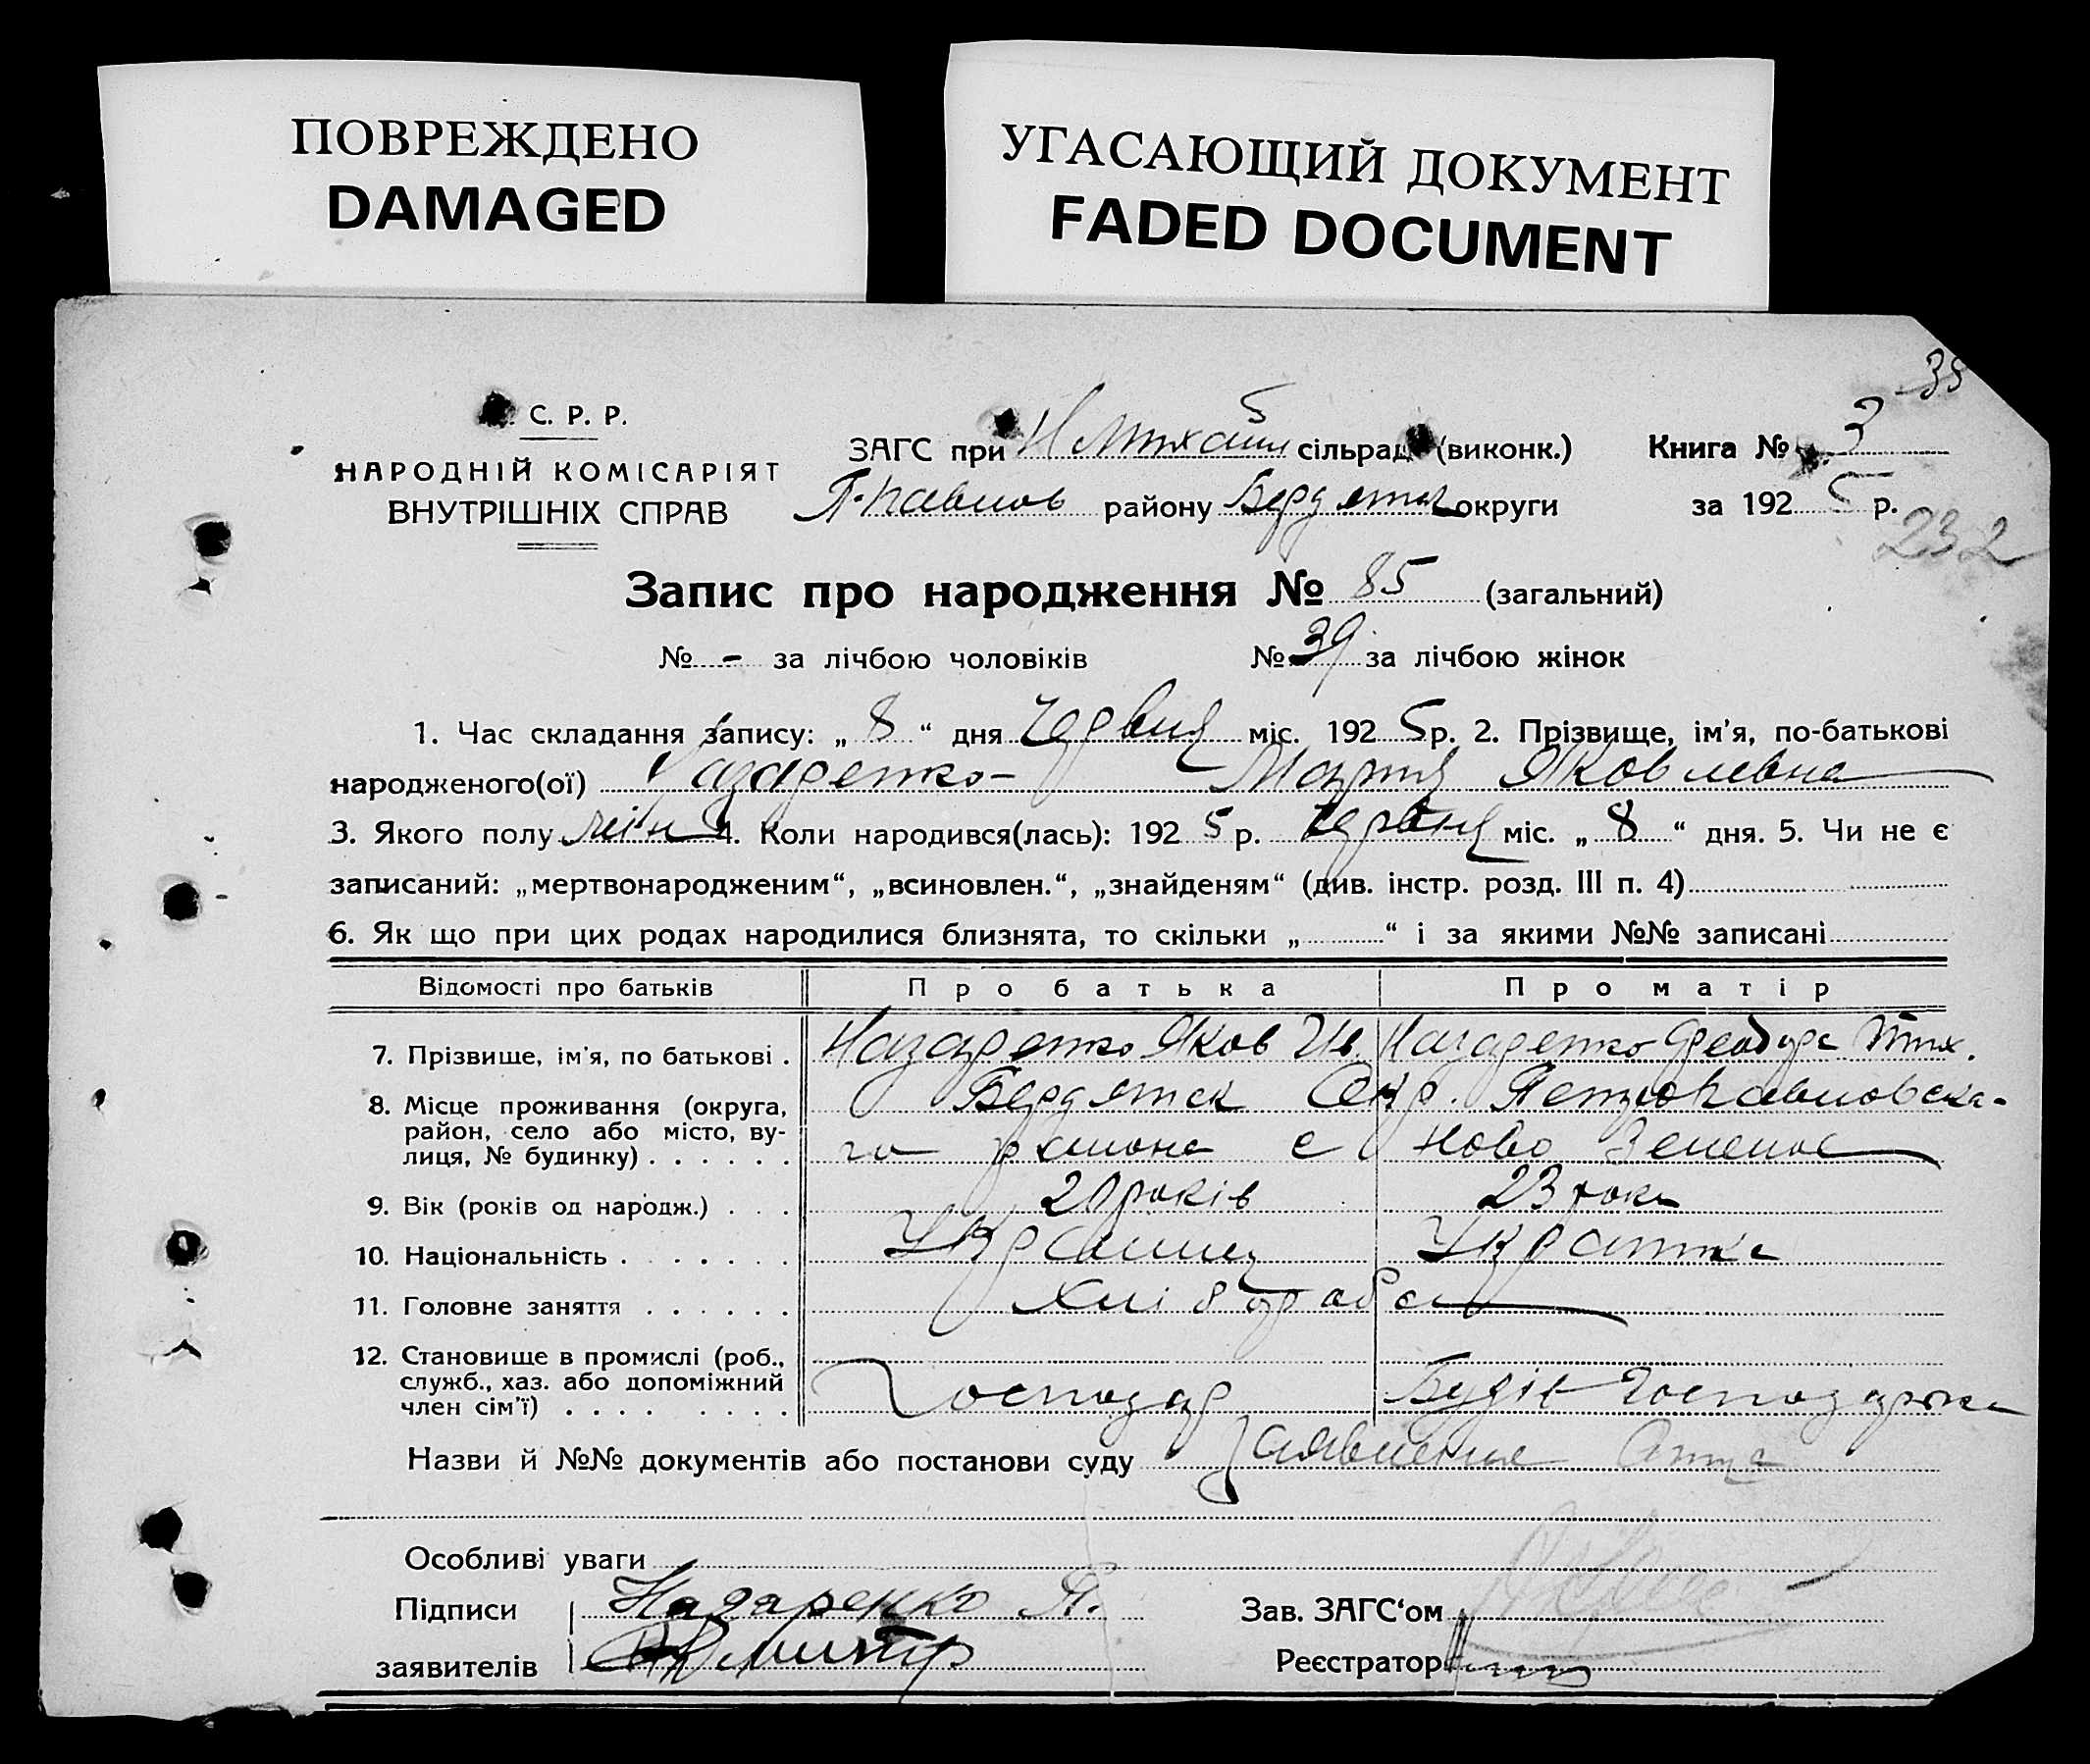 ПОВРЕЖДЕНО
DAMAGED
УГАСАЮЩИЙ ДОКУМЕНТ
FADED DOCUMENT
35
С. Р. Р.
НАРОДНІЙ КОМІСАРІЯТ
ВНУТРІШНІХ СПРАВ
ЗАГС при сільрад (виконк.) Книга № 3
П-Павлов району Бердянськ округи за 1925 р.
232
Запис про народження № 85 (загальний)
№ - за лічбою чоловіків № 39 за лічбою жінок
1. Час складання запису: „ 8 “ дня Червня міс. 1925 р. 2. Прізвище, ім'я, по-батькові
народженого(ої) Назаренко Мария Яковлевна
3. Якого полу жін 4. Коли народився(лась): 1925 р. Червня міс. „ 8 “ дня. 5. Чи не є
записаний: „мертвонародженим“, „всиновлен.“, „знайденям“ (див. інстр. розд. III п. 4)
6. Як що при цих родах народилися близнята, то скільки „ “ і за якими №№ записані
Відомості про батьків Про батька Про матір
7. Прізвище, ім'я, по батькові . Назаренко Яков Ив. Назаренко Феодора
8. Місце проживання (округа, Бердянск Окр. Петропавловска-
район, село або місто, ву-
лиця, № будинку) . . . . . . го района с Ново
9. Вік (років од народж.) . . . років 23 роки
10. Національність . . . . . . . Українец Українка
11. Головне заняття . . . . . . Хлібораб
12. Становище в промислі (роб.,
служб., хаз. або допоміжний
член сім'ї) . . . . . . . . . Господар
Назви й №№ документів або постанови суду Заявление Отца
Особливі уваги
Підписи Назаренко Я.
Зав. ЗАГС‘ом
заявителів
Реєстратор